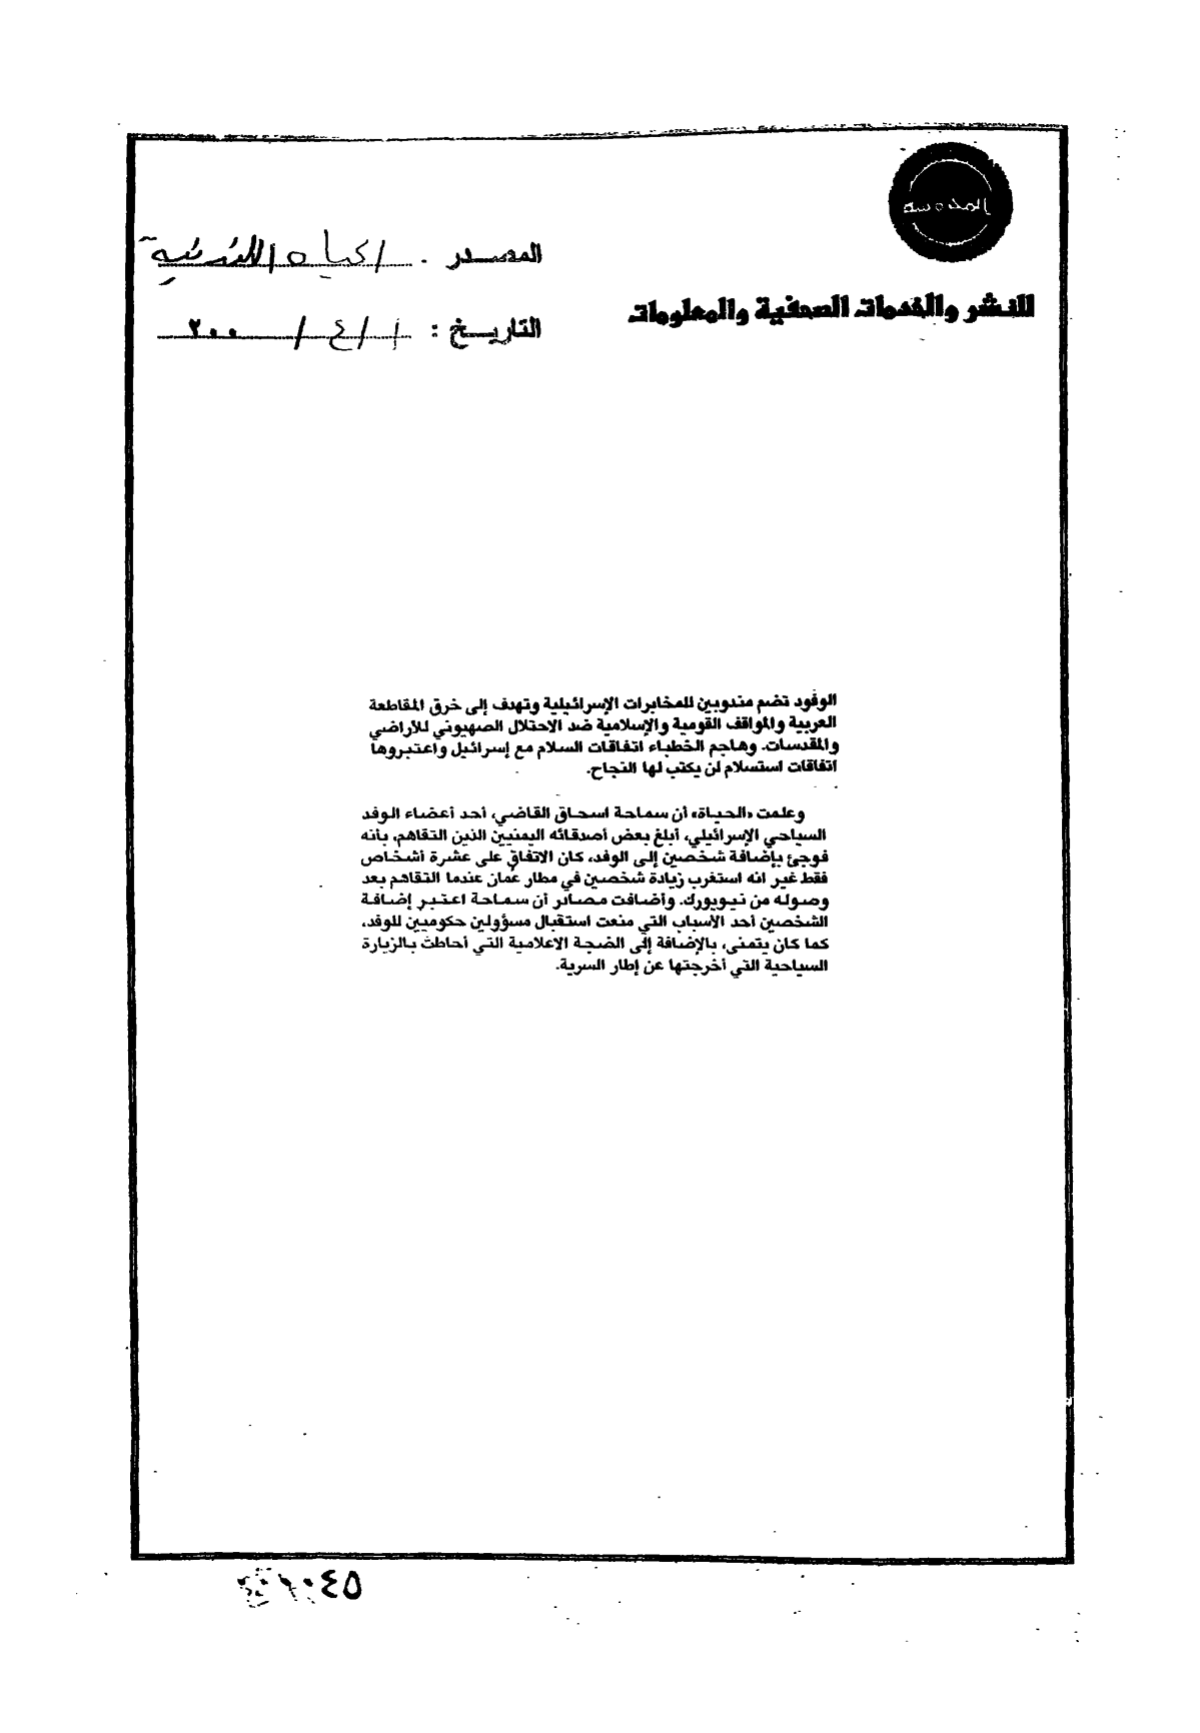 المصدر : الحياة اللندنية
للنشر والخدمات الصحفية والمعلومات
التاريخ : ١ / ٤ / ٢٠٠٠
الوفود تضم مندوبين للمخابرات الإسرائيلية وتهدف إلى خرق المقاطعة
العربية والمواقف القومية والإسلامية ضد الاحتلال الصهيوني للأراضي
والمقدسات. وهاجم الخطباء اتفاقات السلام مع إسرائيل واعتبروها
اتفاقات استسلام لن يكتب لها النجاح.
وعلمت «الحياة» أن سماحة اسحاق القاضي، أحد أعضاء الوفد
السياحي الإسرائيلي، أبلغ بعض أصدقائه اليمنيين الذين التقاهم، بأنه
فوجئ بإضافة شخصين إلى الوفد، كان الاتفاق على عشرة أشخاص
فقط غير انه استغرب زيادة شخصين في مطار عُمان عندما التقاهم بعد
وصوله من نيويورك. وأضافت مصادر أن سماحة اعتبر إضافة
الشخصين أحد الأسباب التي منعت استقبال مسؤولين حكوميين للوفد،
كما كان يتمنى، بالإضافة إلى الضجة الاعلامية التي أحاطت بالزيارة
السياحية التي أخرجتها عن إطار السرية.